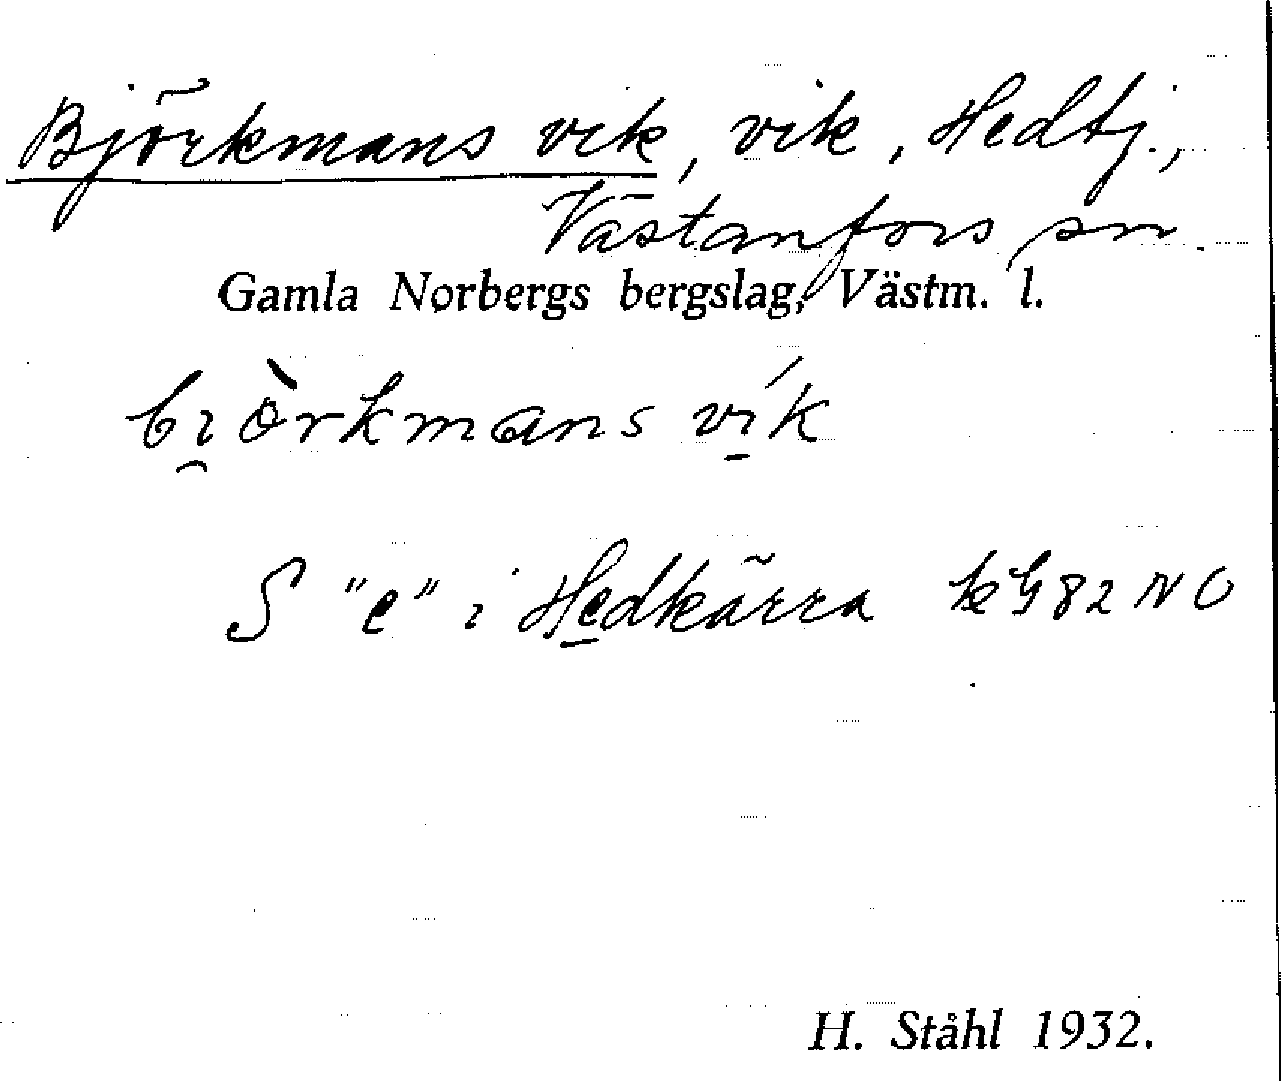 Björkmans vik, vik, Hedtj.,
Västanfors sn.
Gamla Norbergs bergslag, Västm. l.
bi̯òrkmans ví̱k
S "e" i Hedkärra kG82NO
H. Ståhl 1932.